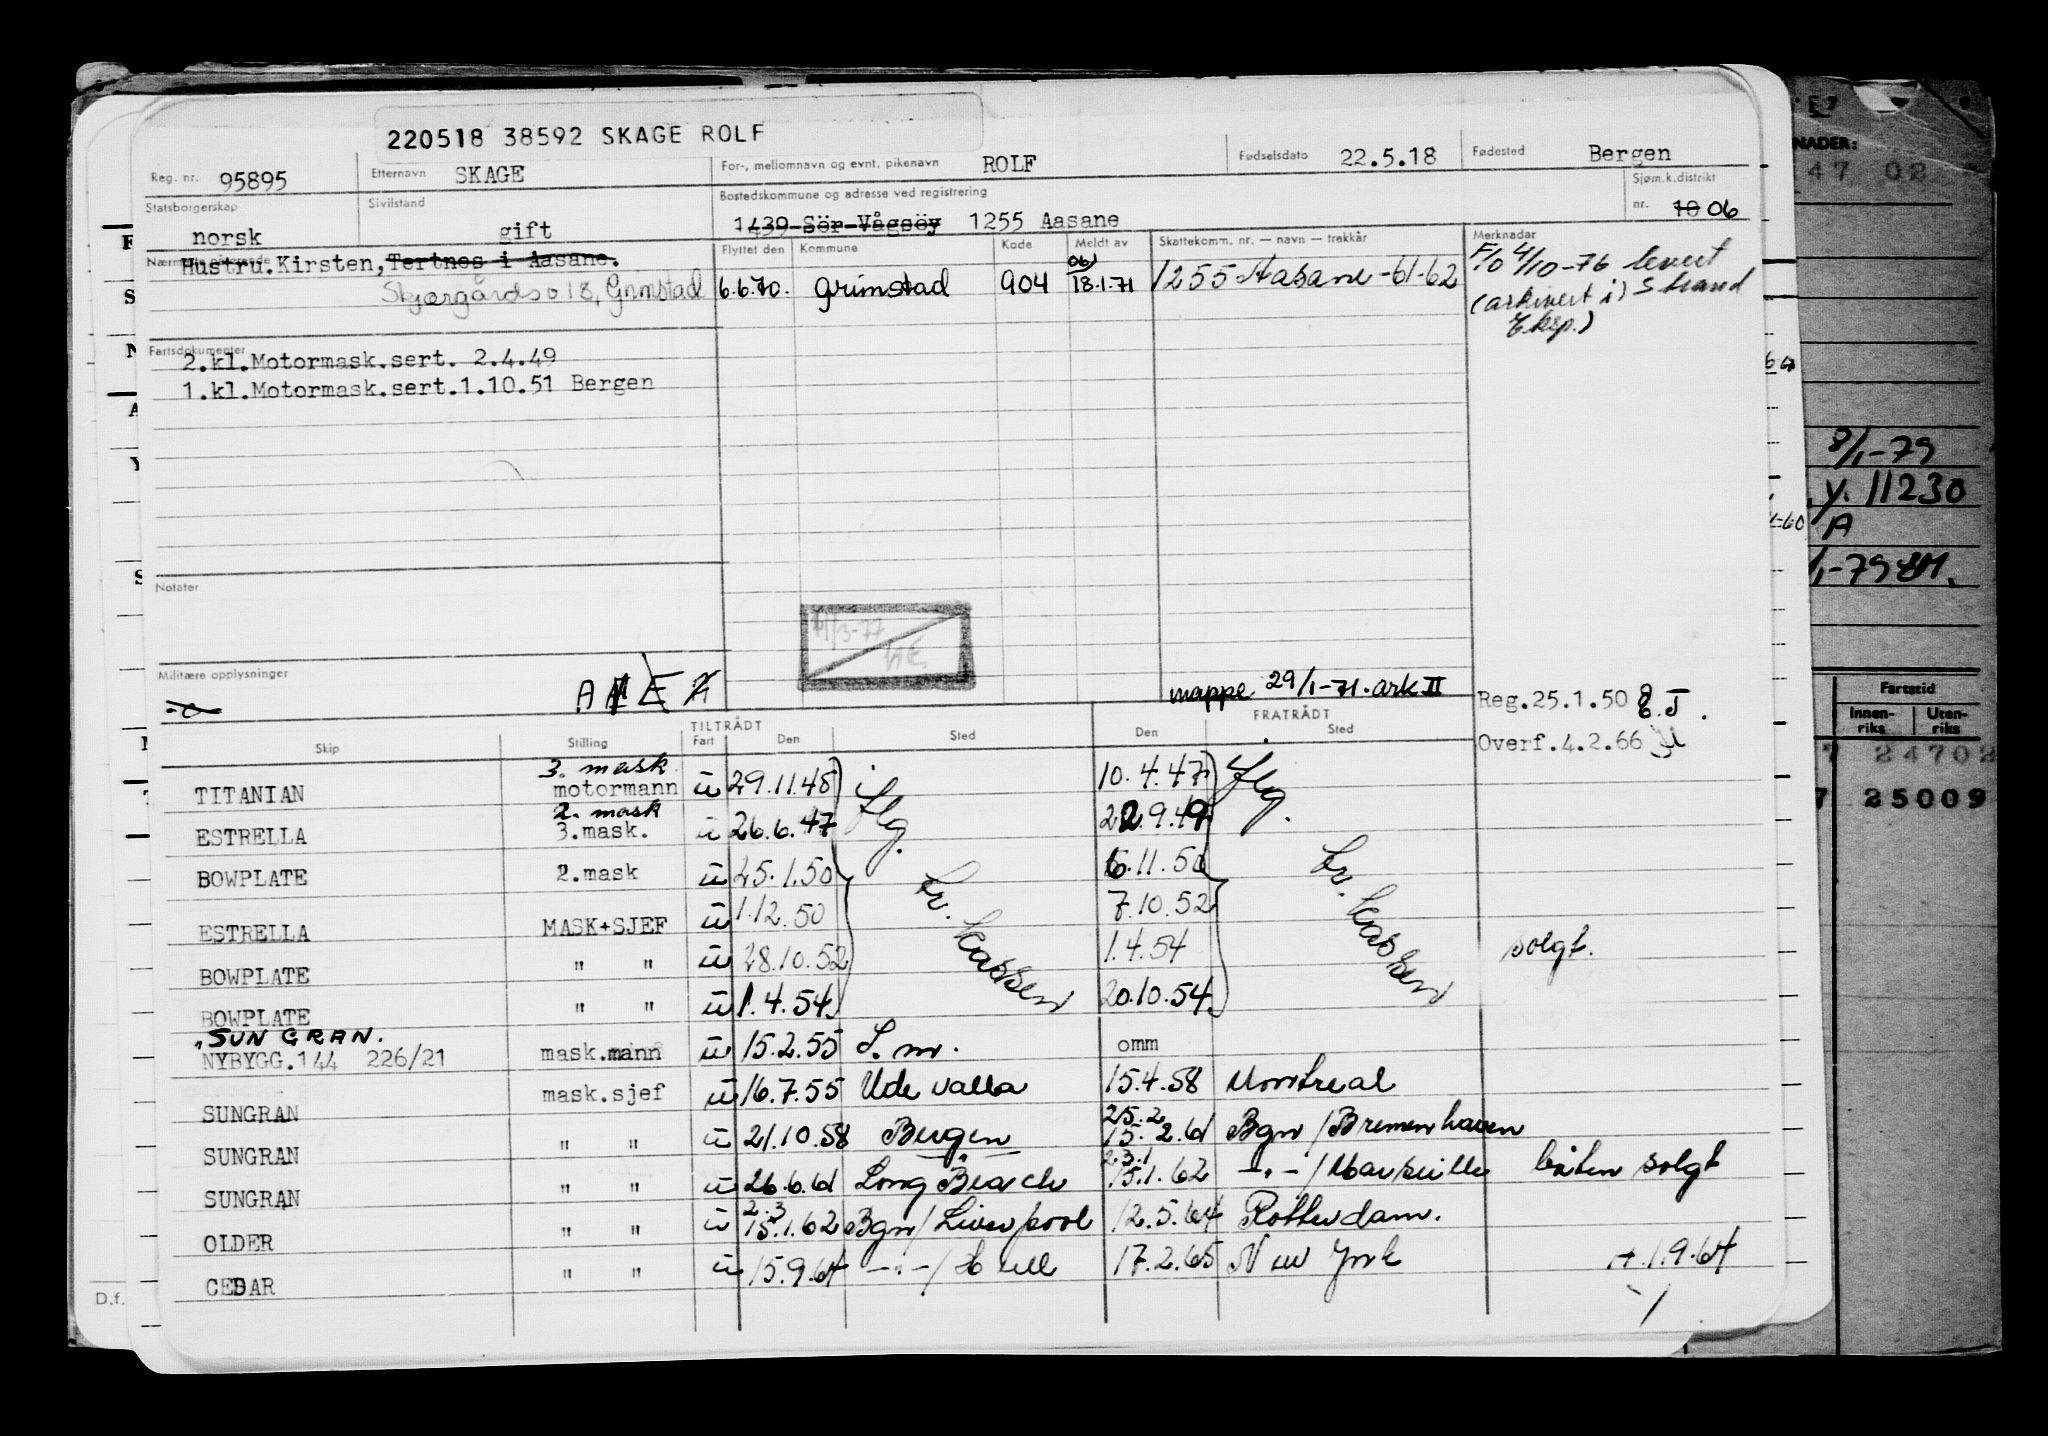 220518 38592 SKAGE ROLF
Reg. nr. 95895 Etternavn SKAGE For-, mellomnavn og evnt. pikenavn ROLF Fødselsdato 22.5.18 Fødested Bergen
Statsborgerskap norsk Sivilstand gift Bostedskommune og adresse ved registrering 1439 Sör-Vågsöy 1255 Aasane Sjøm.k.distrikt nr. 10 06
Flyttet den Kommune Kode Meldt av Skattekomm. nr. — navn — trekkår Merknader
Hustru.Kirsten, Tertnes i Aasane.
Skjærgårdso 18, Grimstad 6.6.70. Grimstad 904 18.1.71 1255 Aasane -61-62
F/O 4/10-76 levert
(arkivert i) Strand
Eksp.)
Fartsdokumenter
2.kl.Motormask.sert. 2.4.49
1.kl.Motormask.sert.1.10.51 Bergen
Notater
Militære opplysninger
mappe 29/1-71. ark II
Reg.25.1.50 E.J.
Overf.4.2.66
Skip Stilling TILTRÅDT Fart Den Sted FRATRÅDT Den Sted
TITANIAN 3. mask motormann u 29.11.45 iflg. 10.4.47 iflg.
ESTRELLA 2. mask 3.mask. u 26.6.47 22.9.49
BOWPLATE 2.mask u 25.1.50 6.11.50
ESTRELLA MASK+SJEF u 1.12.50 7.10.52
BOWPLATE " " u 28.10.52 1.4.54 solgt.
BOWPLATE " " u 1.4.54 20.10.54
"SUN GRAN.
NYBYGG.144 226/21 mask.mann u 15.2.55 S. m. omm
SUNGRAN mask.sjef u 16.7.55 Udevalla 15.4.58 Montreal
SUNGRAN " " u 21.10.58 Bergen 25.2 15.2.61 Bgn/Bremenhaven
SUNGRAN " " u 26.6.61 Long Beach 2.3.1 15.1.62 -"-/Marseille båten solgt
OLDER " " u 2.3 15.1.62 Bgn/Liverpool 12.5.64 Rotterdam.
CEDAR " " u 15.9.64 -"-/Hull 17.2.65 New York + 1.9.64
D.f.
NADER:
47 02
8/1-79
y. 11230
A
Fartstid
Innen-riks Uten-riks
24702
25009